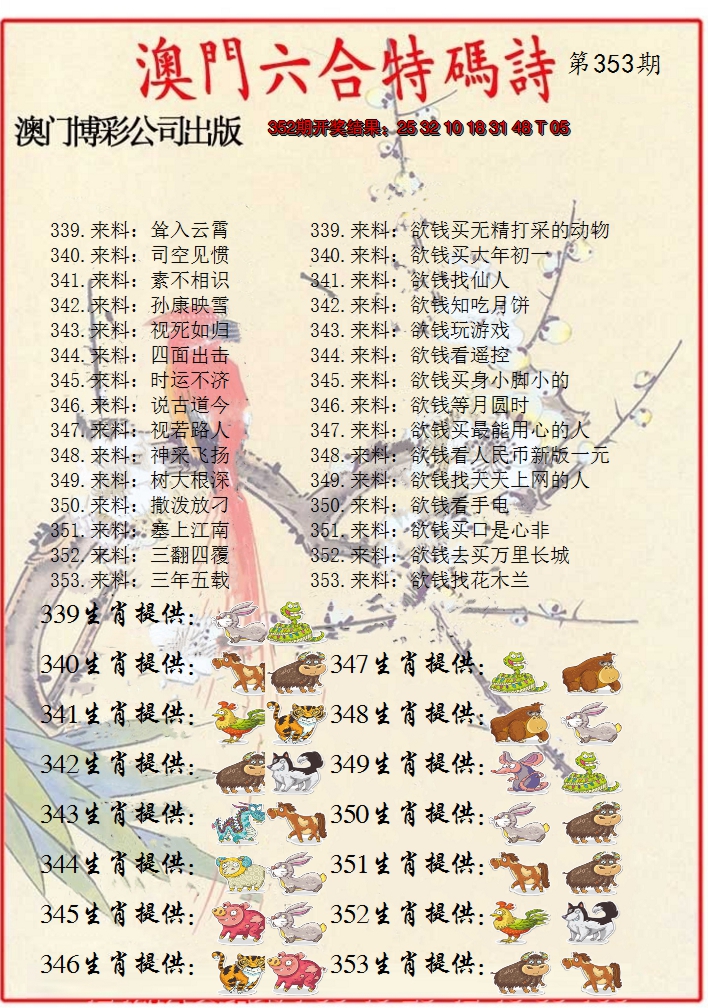 澳門六合特碼詩 第353期
澳门博彩公司出版 352期开奖结果：25 32 10 18 31 48 T 05
339.来料：耸入云霄 339.来料：欲钱买无精打采的动物
340.来料：司空见惯 340.来料：欲钱买大年初一
341.来料：素不相识 341.来料：欲钱找仙人
342.来料：孙康映雪 342.来料：欲钱知吃月饼
343.来料：视死如归 343.来料：欲钱玩游戏
344.来料：四面出击 344.来料：欲钱看遥控
345.来料：时运不济 345.来料：欲钱买身小脚小的
346.来料：说古道今 346.来料：欲钱等月圆时
347.来料：视若路人 347.来料：欲钱买最能用心的人
348.来料：神采飞扬 348.来料：欲钱看人民币新版一元
349.来料：树大根深 349.来料：欲钱找天天上网的人
350.来料：撒泼放刁 350.来料：欲钱看手电
351.来料：塞上江南 351.来料：欲钱买口是心非
352.来料：三翻四覆 352.来料：欲钱去买万里长城
353.来料：三年五载 353.来料：欲钱找花木兰
339生肖提供：
340生肖提供： 347生肖提供：
341生肖提供： 348生肖提供：
342生肖提供： 349生肖提供：
343生肖提供： 350生肖提供：
344生肖提供： 351生肖提供：
345生肖提供： 352生肖提供：
346生肖提供： 353生肖提供：